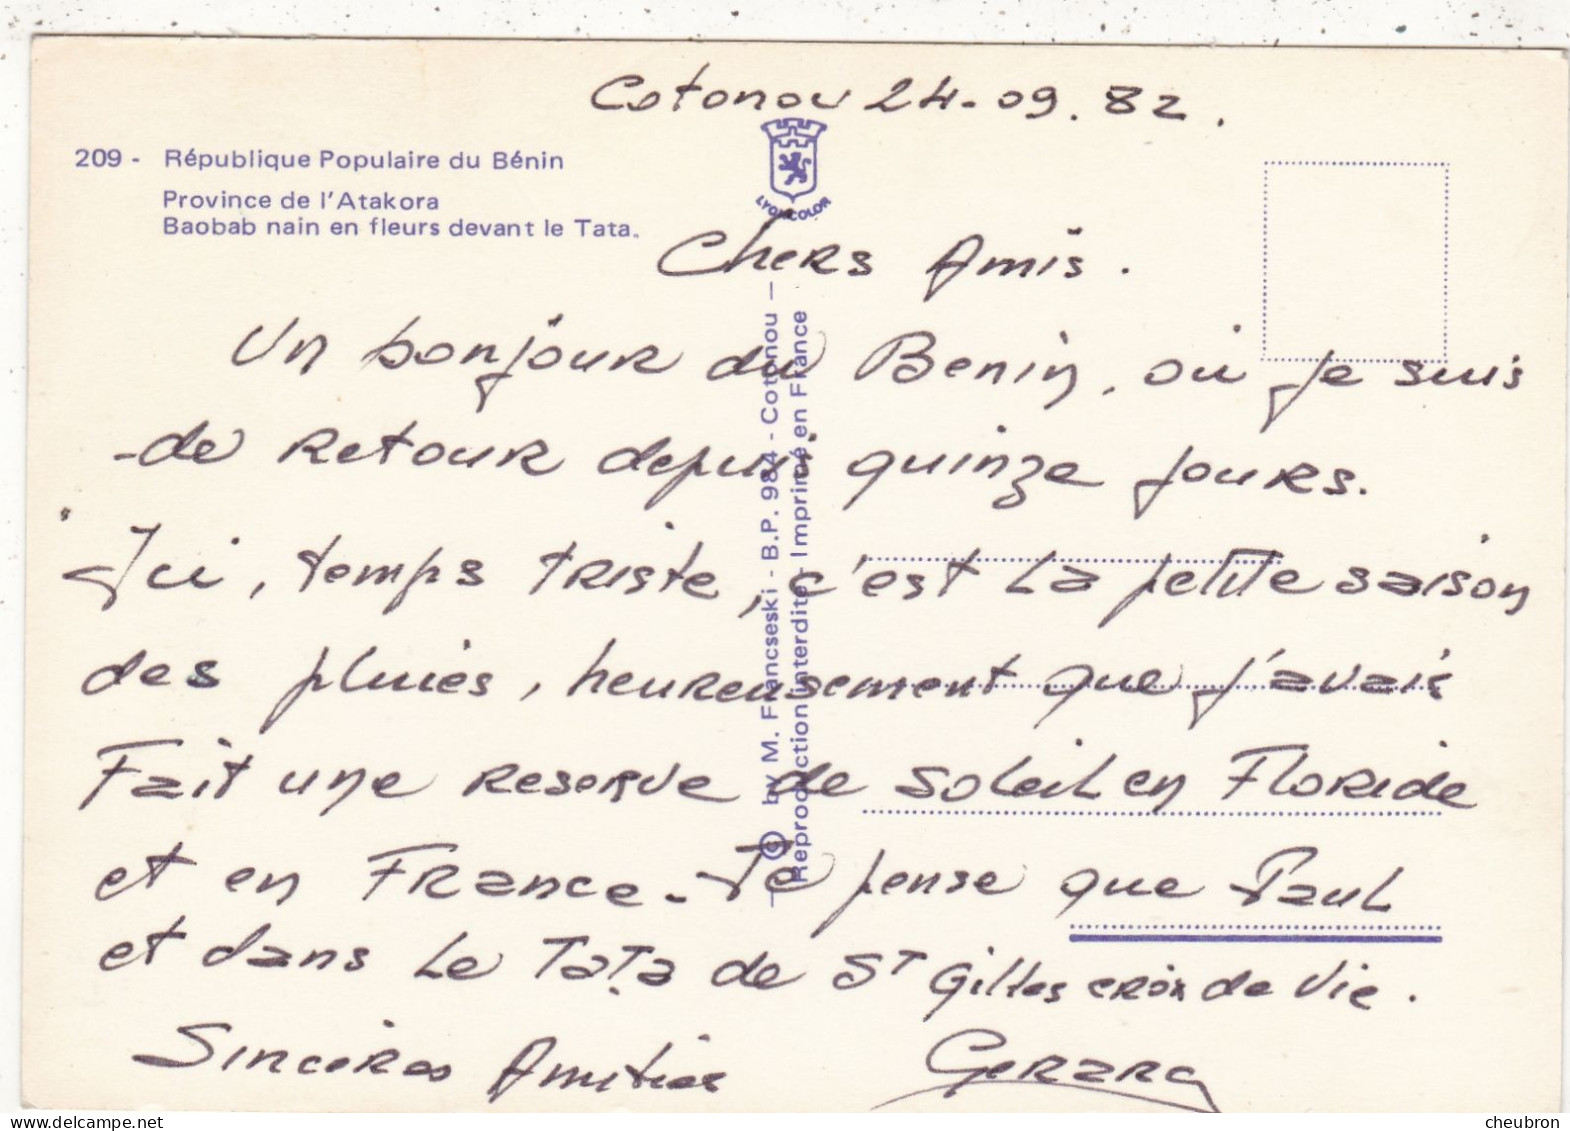 Cotonou 24-09.82.
209 - République Populaire du Bénin
Province de l'Atakora
Baobab nain en fleurs devant le Tata.
LYONCOLOR
Chers Amis.
Un bonjour du Benin, où je suis
de retour depuis quinze jours.
Ici, temps triste, c'est la petite saison
des pluies, heureusement que j'avais
Fait une reserve de soleil en Floride
et en France - Je pense que Paul
et dans le Tata de ST Gilles croix de Vie.
Sincères Amitiés Gerard
© by M. Francseski - B.P. 984 - Cotonou -
Reproduction interdite - Imprimé en France
www.delcampe.net
cheubron